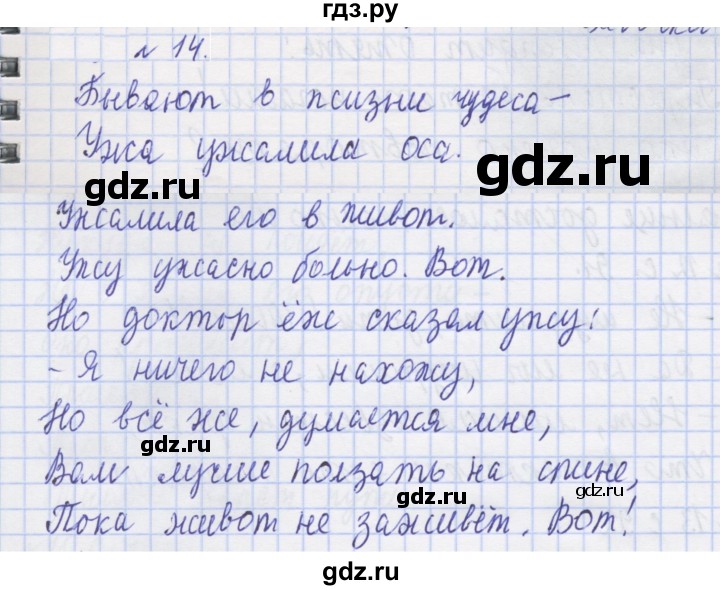 гдз.ру
№ 14.
Бывают в жизни чудеса –
Ужа ужалила оса.
gdz.ru
gdz.ru
Ужалила его в живот.
Ужу ужасно больно. Вот.
Но доктор ёж сказал ужу:
- Я ничего не нахожу,
Но всё же, думается мне,
gdz.ru
Вам лучше ползать на спине,
gdz.ru
Пока живот не заживёт. Вот!
gdz.ru